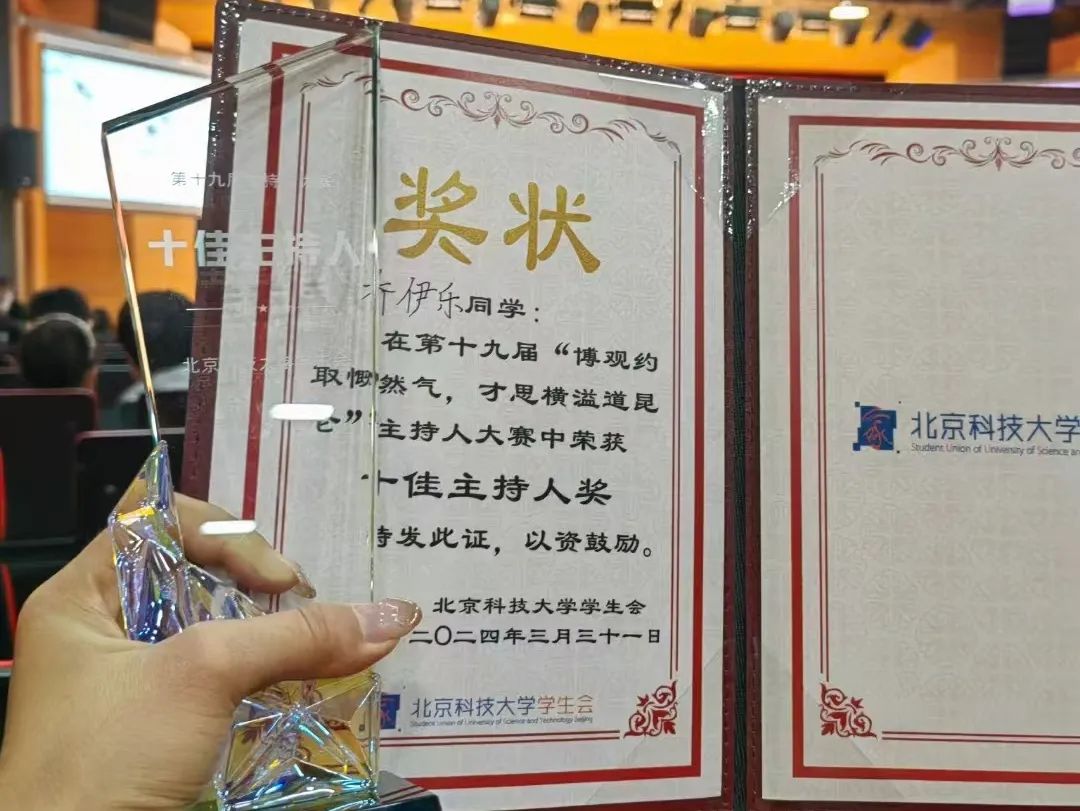 第十九届
十佳主持人
北京
奖状
伊乐同学：
在第十九届“博观约
取慨然气，才思横溢道昆
仑”主持人大赛中荣获
十佳主持人奖
特发此证，以资鼓励。
北京科技大学学生会
二〇二四年三月三十一日
北京科技大学学生会
Student Union of University of Science and Technology Beijing
北京科技大学
Student Union of University of Science an